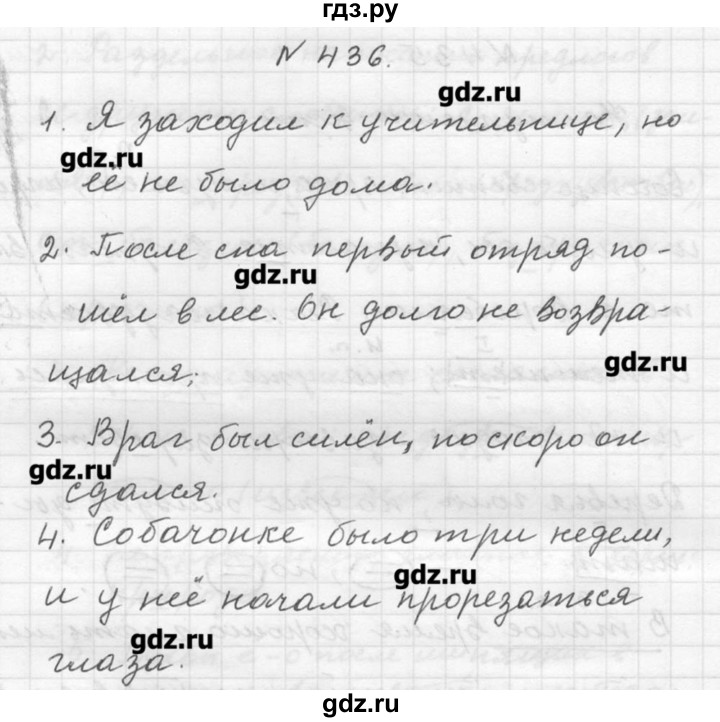 гдз.ру
N 436.
gdz.ru
1. Я заходил к учительнице, но
gdz.ru
её не было дома.
2. После сна первый отряд по-
gdz.ru
шёл в лес. Он долго не возвра-
gdz.ru
щался;
3. Враг был силён, но скоро он
gdz.ru
сдался.
4. Собачонке было три недели,
gdz.ru
и у неё начали прорезаться
gdz.ru
глаза.
gdz.ru